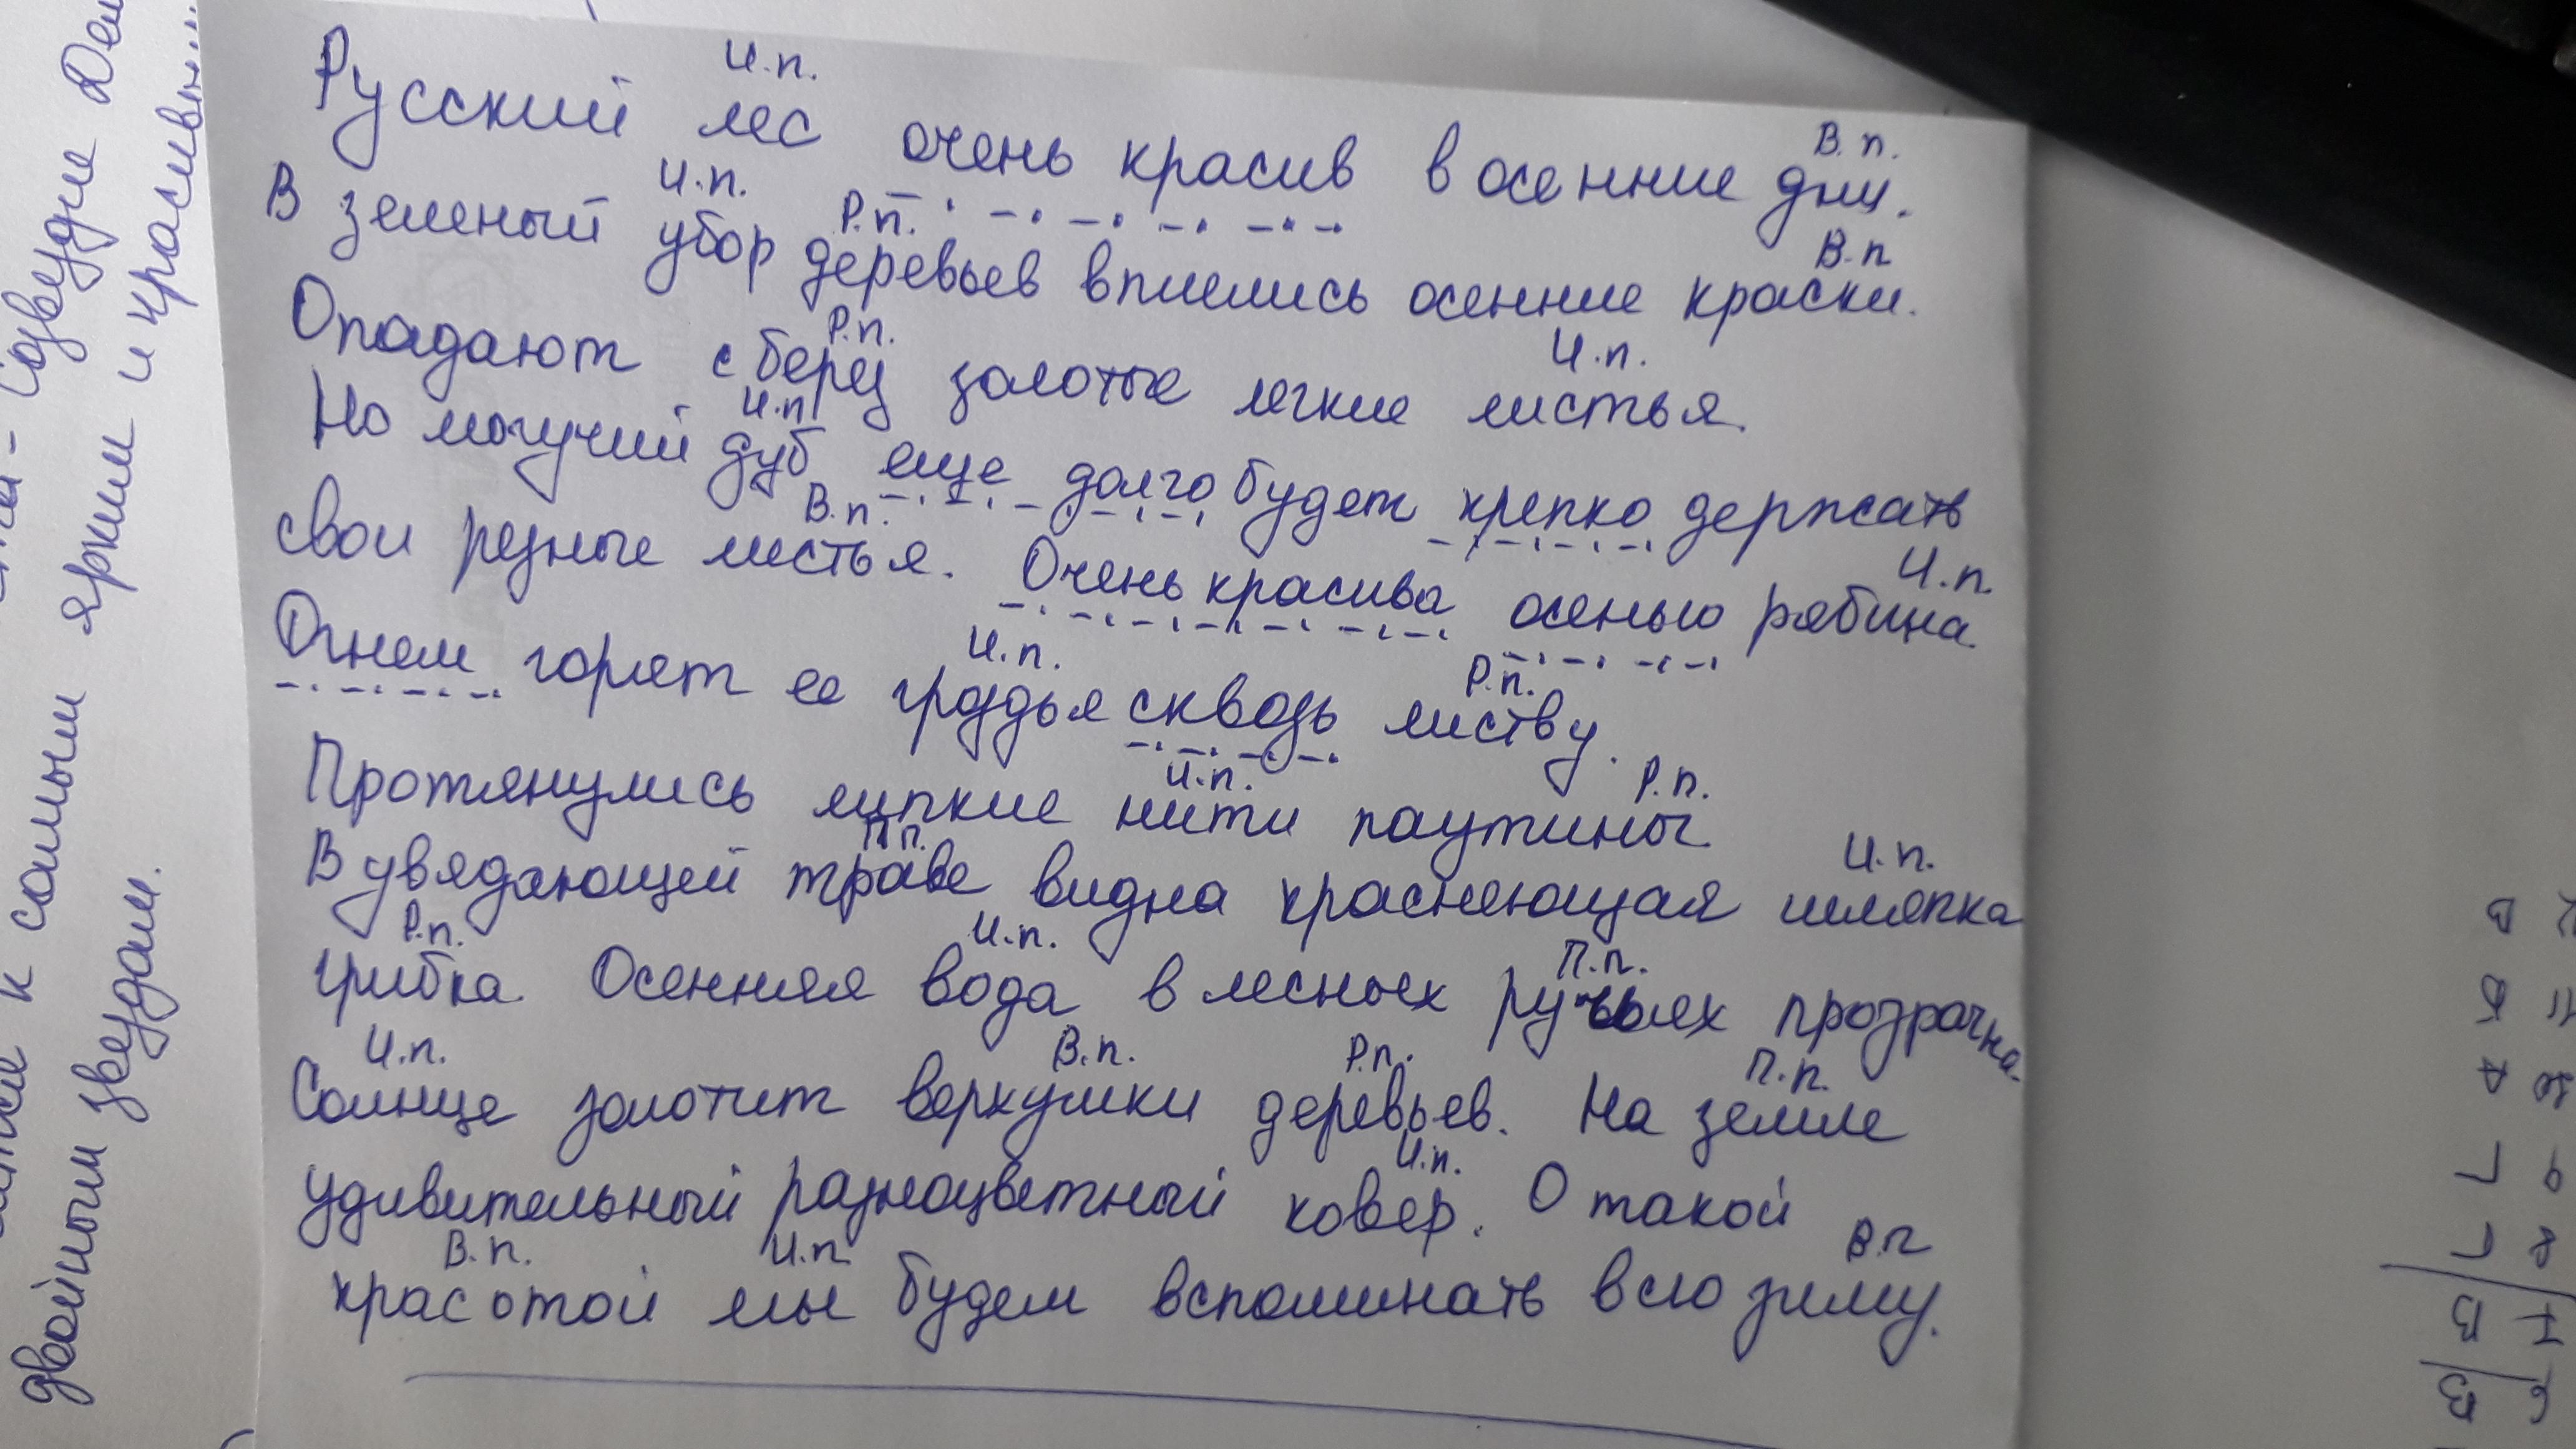 И.п. В.п.
Русский лес очень красив в осенние дни.
И.п. Р.п. В.п
В зеленый убор деревьев вплелись осенние краски.
Р.п. И.п.
Опадают с берез золотые легкие листья.
И.п
Но могучий дуб еще долго будет крепко держать
В.п. И.п.
свои резные листья. Очень красива осенью рябина.
И.п. Р.п.
Огнем горят ее гроздья сквозь листву.
И.п. Р.п.
Протянулись липкие нити паутины.
П.п. И.п.
В увядающей траве видна краснеющая шляпка
Р.п. И.п. П.п.
грибка. Осенняя вода в лесных ручьях прозрачна.
И.п. В.п. Р.п. П.п.
Солнце золотит верхушки деревьев. На земле
И.п.
удивительный разноцветный ковер. О такой
В.п. И.п. В.п
красотой мы будем вспоминать всю зиму.
Созвездие
к самым ярким и
двойным звездам.
6 В
7 В
8 Г
9 Г
10 А
11 Б
В